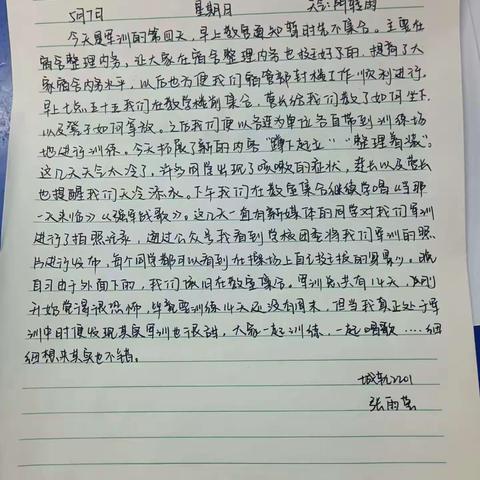 5月7日 星期日 天气:阴转雨
今天是军训的第四天,早上教官通知暂时先不集合。主要在
宿舍整理内务,让大家在宿舍整理内务也挺好了的,提高了大
家宿舍内务水平,以后也方便我们宿管部封楼工作顺利进行。
早上七点五十五我们在教学楼前集合,营长给我们教了如何坐下
以及凳子如何拿放。之后我们便以各连为单位各自带到训练场
地进行训练。今天拓展了新的内容“蹲下起立”“整理着装”。
这几天天气太冷了,许多同学出现了咳嗽的症状,连长以及营长
也提醒我们天冷添衣。下午我们在教室集合继续学唱《当那
一天来临》《强军战歌》。这几天一直有新媒体的同学对我们军训
进行了拍照记录,通过公众号我看到学校团委将我们军训的照
片进行发布,每个同学都可以看到在操场上自己挺拔的身影。晚
自习由于外面下雨,我们依旧在教室集合。军训总共有14天,
开始觉得很恐怖,毕竟要训练14天还没有周末,但当我真正处于军
训中时便发现其实军训也很甜,大家一起训练,一起唱歌……细
细想来其实也不错。
城轨2201
张雨